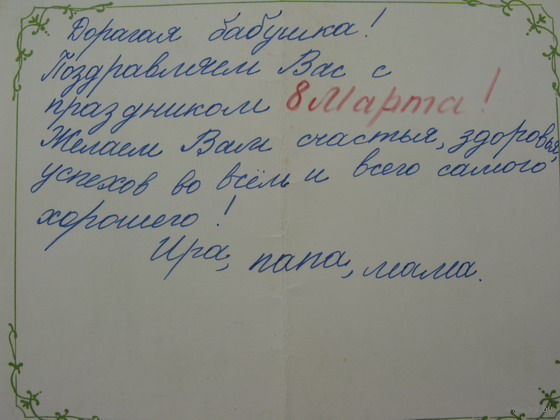 Дорогая бабушка!
Поздравляем Вас с
праздником 8 Марта!
Желаем Вам счастья, здоровья,
успехов во всём и всего самого
хорошего!
Ира, папа, мама.